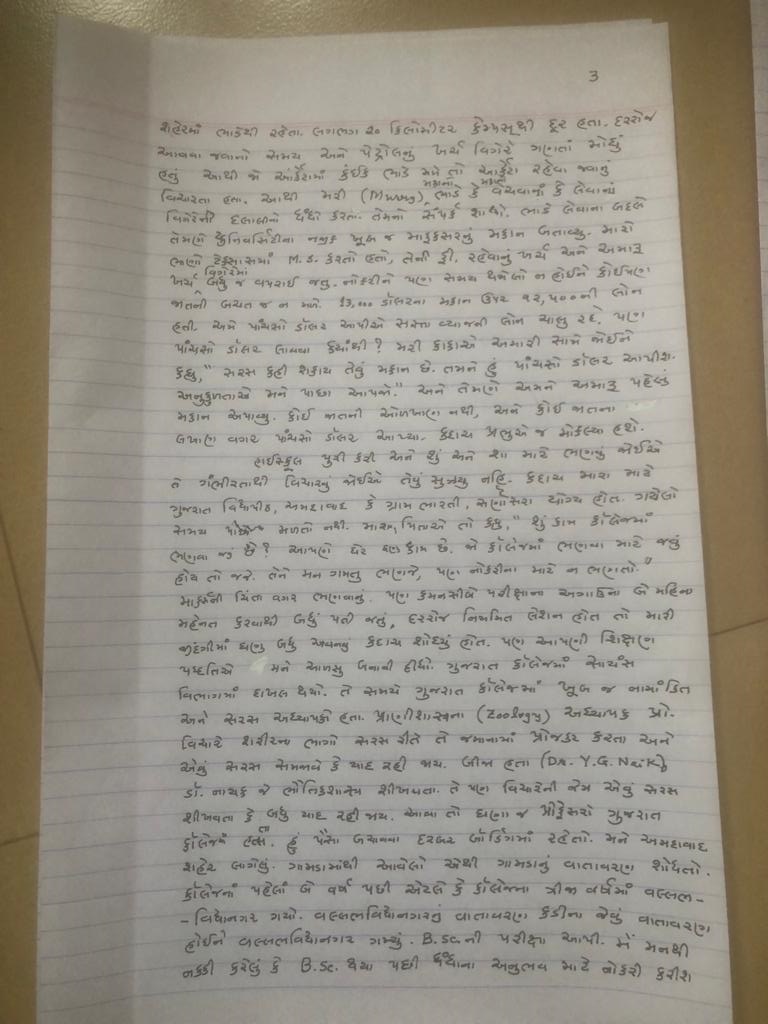 3
શહેરમાં ભાડેથી રહેતા. લગભગ ૨૦ કિલોમીટર કેમ્પસથી દૂર હતા. દરરોજ
આવવા જવાનો સમય અને પેટ્રોલનું ખર્ચ વિગેરે ગણતાં મોંઘું
હતું. આથી જો માં કંઈક ભાડે મળે તો રહેવા જવાનું
વિચારતા હતા. આથી મરી (Murray), મકાનના ભાડે કે વેચવાનાં કે લેવાનાં
વિગેરેની દલાલીનો ધંધો કરતા. તેમનો સંપર્ક સાધ્યો. ભાડે લેવાના બદલે
તેમણે યુનિવર્સિટીના નજીક ખૂબ જ માફકસરનું મકાન બતાવ્યુ. મારો
ભાણો ટેક્સાસમાં M.S. કરતો હતો, તેની ફી, રહેવાનું ખર્ચ અને અમારૂ
ખર્ચ વિગેરેમાં બધુ જ વપરાઈ જતુ. નોકરીને પણ સમય થયેલો ન હોઈને કોઈપણ
જાતની બચત જ ન મળે. ૧૩,૦૦૦ ડૉલરના મકાન ઉપર ૧૨,૫૦૦ની લોન
હતી. અમે પાંચસો ડૉલર આપીએ સસ્તા વ્યાજની લોન ચાલુ રહે. પણ
પાંચસો ડૉલર લાવવા ક્યાંથી? મરી કાકાએ અમારી સામે જોઈને
કહ્યુ, "સરસ કહી શકાય તેવું મકાન છે. તમને હું પાંચસો ડૉલર આપીશ.
અનુકુળતાએ મને પાછા આપજો." અને તેમણે અમને અમારૂ પહેલું
મકાન અપાવ્યુ. કોઈ જાતની ઓળખાણ નથી, અને કોઈ જાતના
લખાણ વગર પાંચસો ડૉલર આપ્યા. કદાચ પ્રભુએ જ મોકલ્યા હશે.
હાઈસ્કૂલ પુરી કરી અને શું અને શા માટે ભણવું જોઈએ
તે ગંભીરતાથી વિચારવું જોઈએ તેવું સુઝ્યુ નહિ. કદાચ મારા માટે
ગુજરાત વિદ્યાપીઠ, અમદાવાદ કે ગ્રામ ભારતી, યોગ્ય હોત. ગયેલો
સમય પાછો મળતો નથી. મારા પિતાએ તો કહ્યુ, "શું કામ કૉલેજમાં
ભણવા જવું છે? આપણે ઘેર ઘણુ કામ છે. જો કૉલેજમાં ભણવા માટે જવું
હોય તો જજે. તને મન ગમતુ ભણજે, પણ નોકરીના માટે ન ભણતો."
માર્કની ચિંતા વગર ભણવાનું. પણ કમનસીબે પરીક્ષાના અગાઉના બે મહિના
મહેનત કરવાથી બધું પતી જતું, દરરોજ નિયમિત લેશન હોત તો મારી
જીંદગીમાં ઘણુ બધુ અવનવું કદાચ શોધ્યું હોત. પણ આપણી શિક્ષણ
પધ્ધતિએ મને આળસુ બનાવી દીધો. ગુજરાત કૉલેજમાં સાયંસ
વિભાગમાં દાખલ થયો. તે સમયે ગુજરાત કૉલેજમાં ખૂબ જ નામાંકિત
અને સરસ અધ્યાપકો હતા. પ્રાણીશાસ્ત્રના (Zoology) અધ્યાપક પ્રો.
વિચારે શરીરના ભાગો સરસ રીતે તે જમાનામાં પ્રોજેક્ટ કરતા અને
એવું સરસ સમજાવે કે યાદ રહી જાય. બીજા હતા (Dr. Y.G. Naik)
ડૉ. નાયક જે ભૌતિકશાસ્ત્ર શીખવતા. તે પણ વિચારેની જેમ એવું સરસ
શીખવતા કે બધુ યાદ રહી જાય. આવા તો ઘણા જ પ્રોફેસરો ગુજરાત
કૉલેજમાં હતા. હું પૈસા બચાવવા દરબાર બૉર્ડિંગમાં રહેતો. મને અમદાવાદ
શહેર લાગેલું. ગામડામાંથી આવેલો એથી ગામડાનું વાતાવરણ શોધતો.
કૉલેજનાં પહેલાં બે વર્ષ પછી એટલે કે કૉલેજના ત્રીજા વર્ષમાં વલ્લભ-
-વિદ્યાનગર ગયો. વલ્લભવિદ્યાનગરનું વાતાવરણ કડીના જેવું વાતાવરણ
હોઈને વલ્લભવિદ્યાનગર ગમ્યું. B.Sc.ની પરીક્ષા આપી. મેં મનથી
નક્કી કરેલું કે B.Sc. થયા પછી ધંધાના અનુભવ માટે નોકરી કરીશ